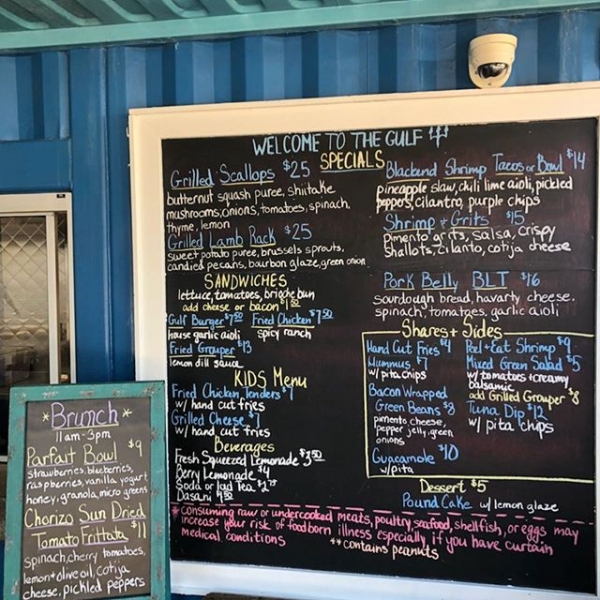 WELCOME TO THE GULF
SPECIALS
Grilled Scallops $25
butternut squash puree, shiitake
mushrooms, onions, tomatoes, spinach,
thyme, lemon
Grilled Lamb Rack $25
sweet potato puree, brussels sprouts,
candied pecans, bourbon glaze, green onion
Blackend Shrimp Tacos or Bowl $14
pineapple slaw, chili lime aioli, pickled
peppers, cilantro, purple chips
Shrimp + Grits $15
Pimento grits, salsa, crispy
shallots, cilanto, cotija cheese
Pork Belly BLT $16
sourdough bread, havarty cheese,
spinach, tomatoes, garlic aioli
SANDWICHES
lettuce, tomatoes, brioche bun
add cheese or bacon $1.50
Gulf Burger $7.50 Fried Chicken $7.50
house garlic aioli spicy ranch
Fried Grouper $13
lemon dill sauce
KIDS Menu
Fried Chicken Tenders $7
w/ hand cut fries
Grilled Cheese $7
w/ hand cut fries
Beverages
Fresh Squeezed Lemonade $3.50
Berry Lemonade $4
Soda or Iced Tea $2.75
Dasani
Shares + Sides
Hand Cut Fries $4
Hummus $7
w/ pita chips
Bacon Wrapped
Green Beans $8
pimento cheese,
pepper jelly, green
onions
Guacamole $10
w/ pita
Peel + Eat Shrimp $9
Mixed Green Salad $5
w/ tomatoes + creamy
balsamic
add Grilled Grouper $8
Tuna Dip $12
w/ pita chips
Dessert $5
Pound Cake w/ lemon glaze
*consuming raw or undercooked meats, poultry, seafood, shellfish, or eggs may
increase your risk of foodborn illness especially if you have curtain
medical conditions
**contains peanuts
*Brunch*
11am-3pm
Parfait Bowl $9
strawberries, blueberries,
raspberries, vanilla yogurt
honey, granola, micro greens
Chorizo Sun Dried
Tomato Frittata $11
spinach, cherry tomatoes,
lemon + olive oil, cotija
cheese, pickled peppers